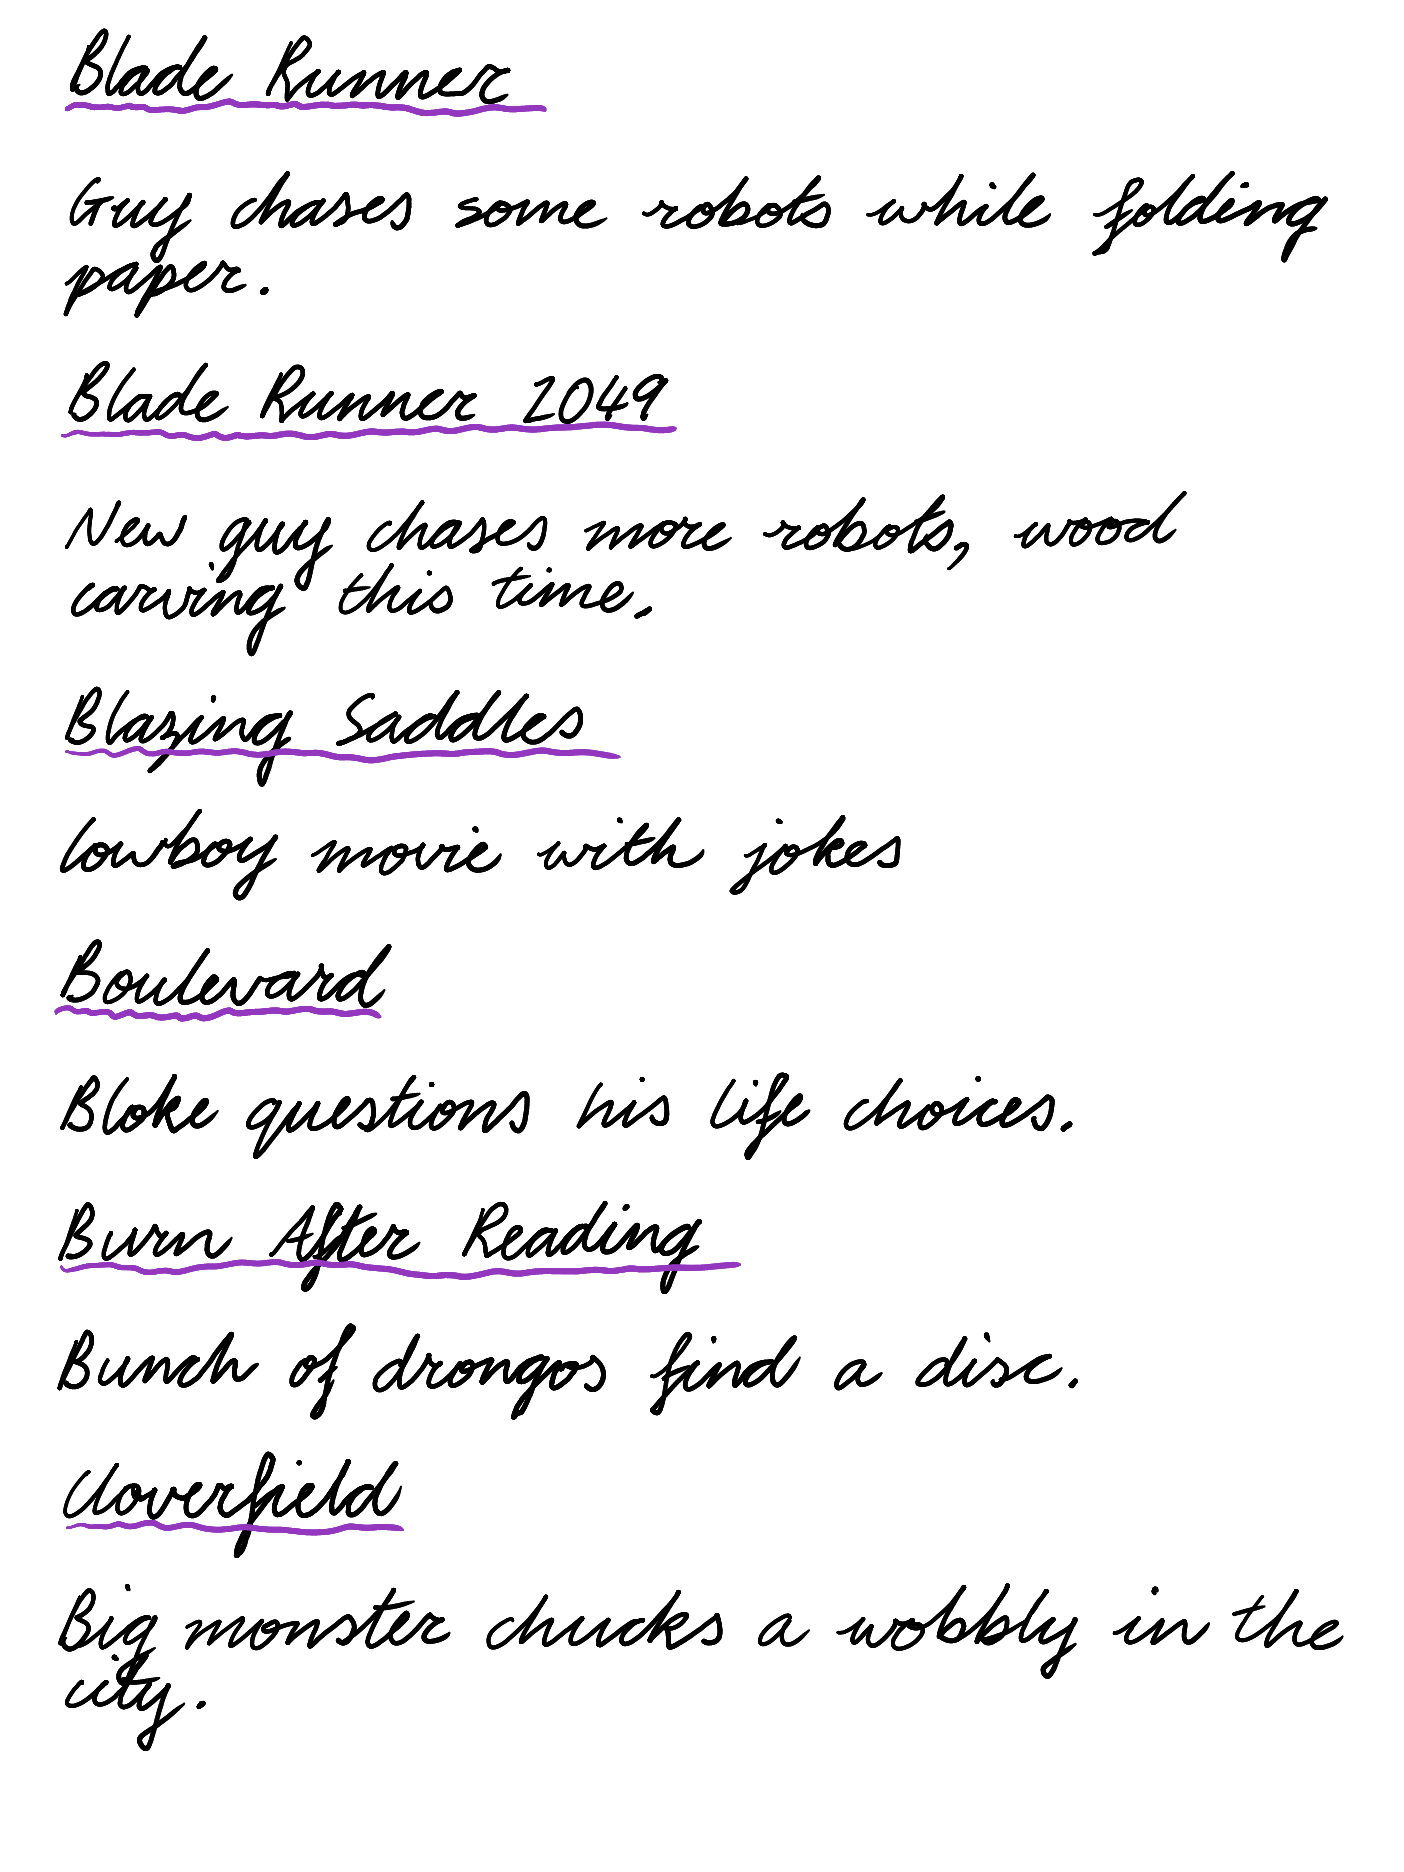 Blade Runner
Guy chases some robots while folding
paper.
Blade Runner 2049
New guy chases more robots, wood
carving this time.
Blazing Saddles
Cowboy movie with jokes
Boulevard
Bloke questions his life choices.
Burn After Reading
Bunch of drongos find a disc.
Cloverfield
Big monster chucks a wobbly in the
city.